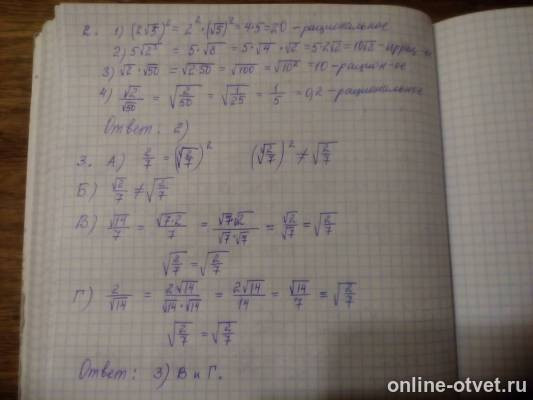 2. 1) (2√5)² = 2²·(√5)² = 4·5 = 20 - рациональное
2) 5√2³ = 5·√8 = 5·√4·√2 = 5·2√2 = 10√2 - иррац-е
3) √2·√50 = √2·50 = √100 = √10² = 10 - рацион-ое
4) √2/√50 = √(2/50) = √(1/25) = 1/5 = 0,2 - рациональное
Ответ: 2)
3. А) 2/7 = (√(2/7))² (√(2/7))² ≠ √(2/7)
Б) √2/7 ≠ √(2/7)
В) √14/7 = √(7·2)/7 = √7·√2/√7·√7 = √2/√7 = √(2/7)
√(2/7) = √(2/7)
Г) 2/√14 = 2√14/√14·√14 = 2√14/14 = √14/7 = √(2/7)
√(2/7) = √(2/7)
Ответ: 3) В и Г.
online-otvet.ru